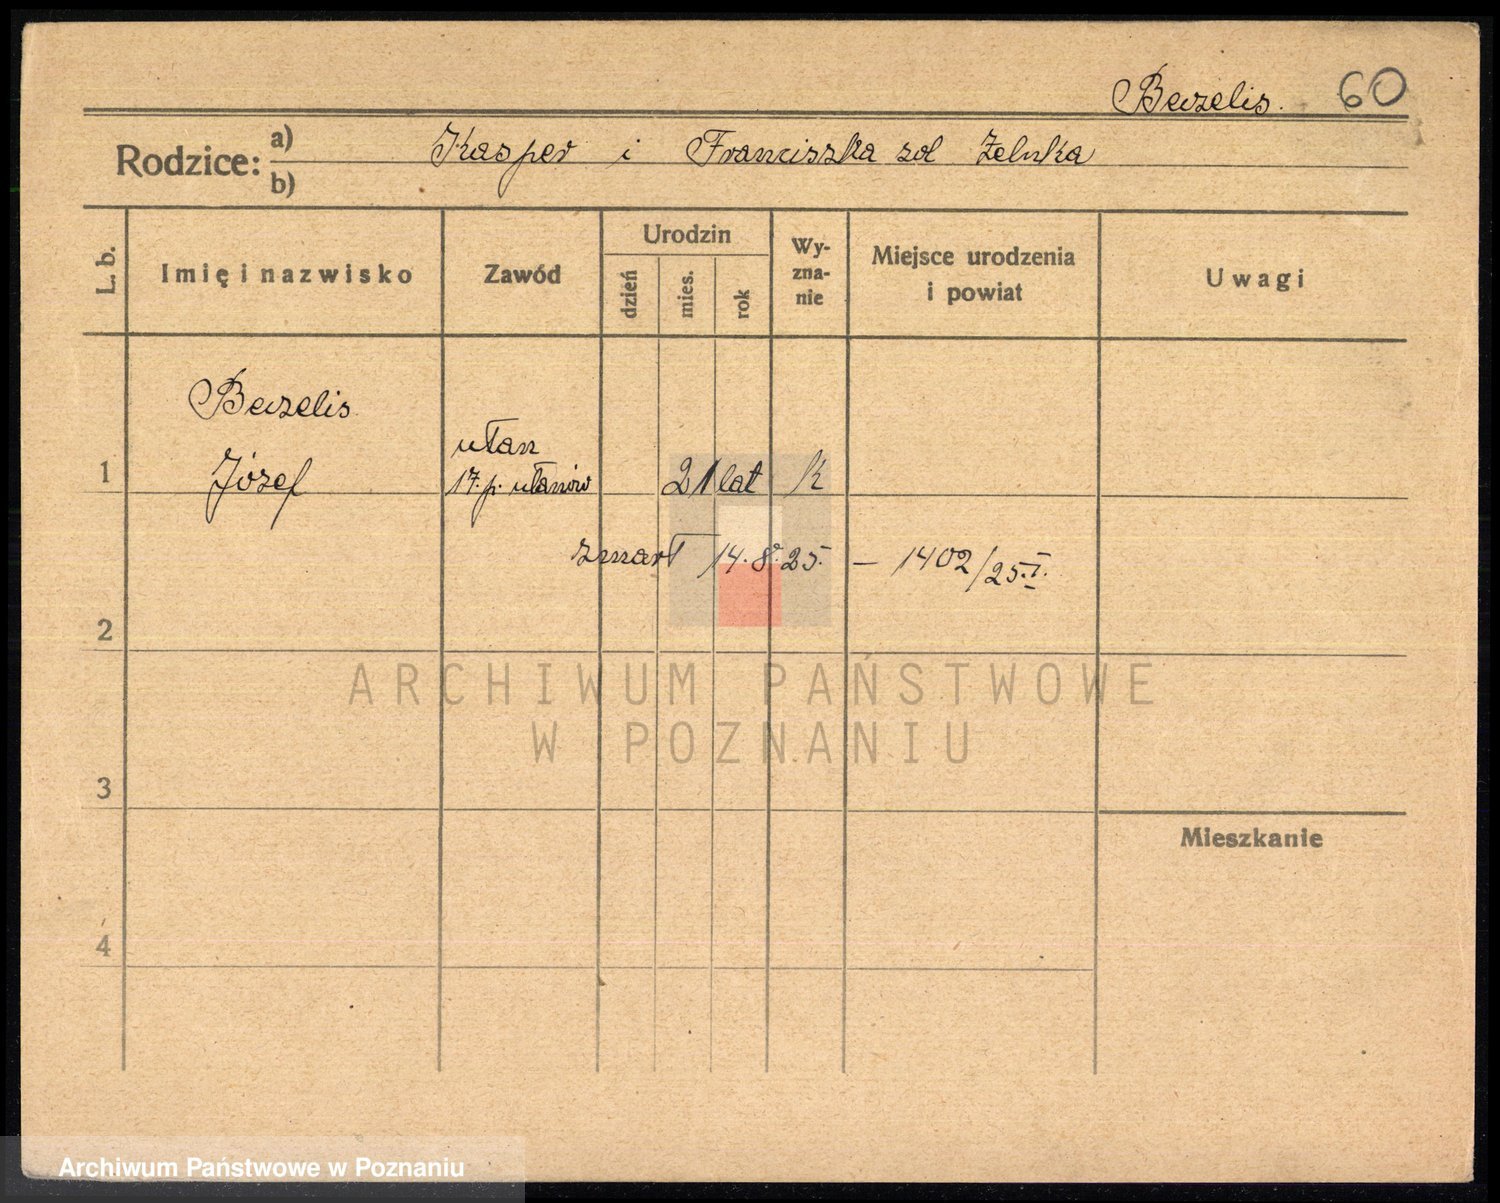 Bewzelis. 60
Rodzice: a) Kasper i Franciszka zol Zelnka
b)
L. b. Imię i nazwisko Zawód Urodzin Wy-zna-nie Miejsce urodzenia i powiat Uwagi
dzień mies. rok
Bewzelis
ułan
1 Józef 17. p. ułanów 21 lat k
zmarł 14.8.25. – 1402/25.I.
2
ARCHIWUM PAŃSTWOWE
W POZNANIU
3
Mieszkanie
4
Archiwum Państwowe w Poznaniu